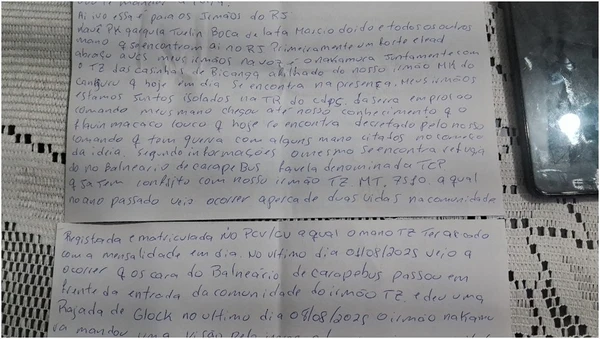 Ai ivo essa e para os Irmãos do RJ
PK gargula Tuelin Boca de lata Marcio doido e todos os outros
mano q se encontram ai no RJ Primeiramente um forte e leal
abraço a vcs meus irmãos na voz e o nakamura Juntamente com
o TZ das casinhas de Bicanga afilhado do nosso irmão MK do
q hoje em dia se encontra na presença, Meus irmãos
estamos Juntos isolados na TR do cdps da serra em prol ao
comando meus mano chegou até nosso conhecimento q o
thum macaco louco q hoje se encontra decretado pelo nosso
comando q tem guerra com alguns mano citados no começo
da idéia segundo informações o mesmo se encontra refugia
do no Balneário de carapeBus favela denominada TCP
q sa tem conflito com nosso irmão TZ MT. 7510. a qual
no ano passado veio ocorrer a perca de duas vidas na comunidade
Registrada e matriculada no PCV/CV a qual o mano TZ
com a mensalidade em dia. No ultimo dia 04/08/2025 veio a
ocorrer q os cara do Balneário de carapebus passou em
frente da entrada da comunidade do irmão TZ e deu uma
Rajada de Glock no ultimo dia 08/08/2025 o irmão nakamu
ra mandou uma visão